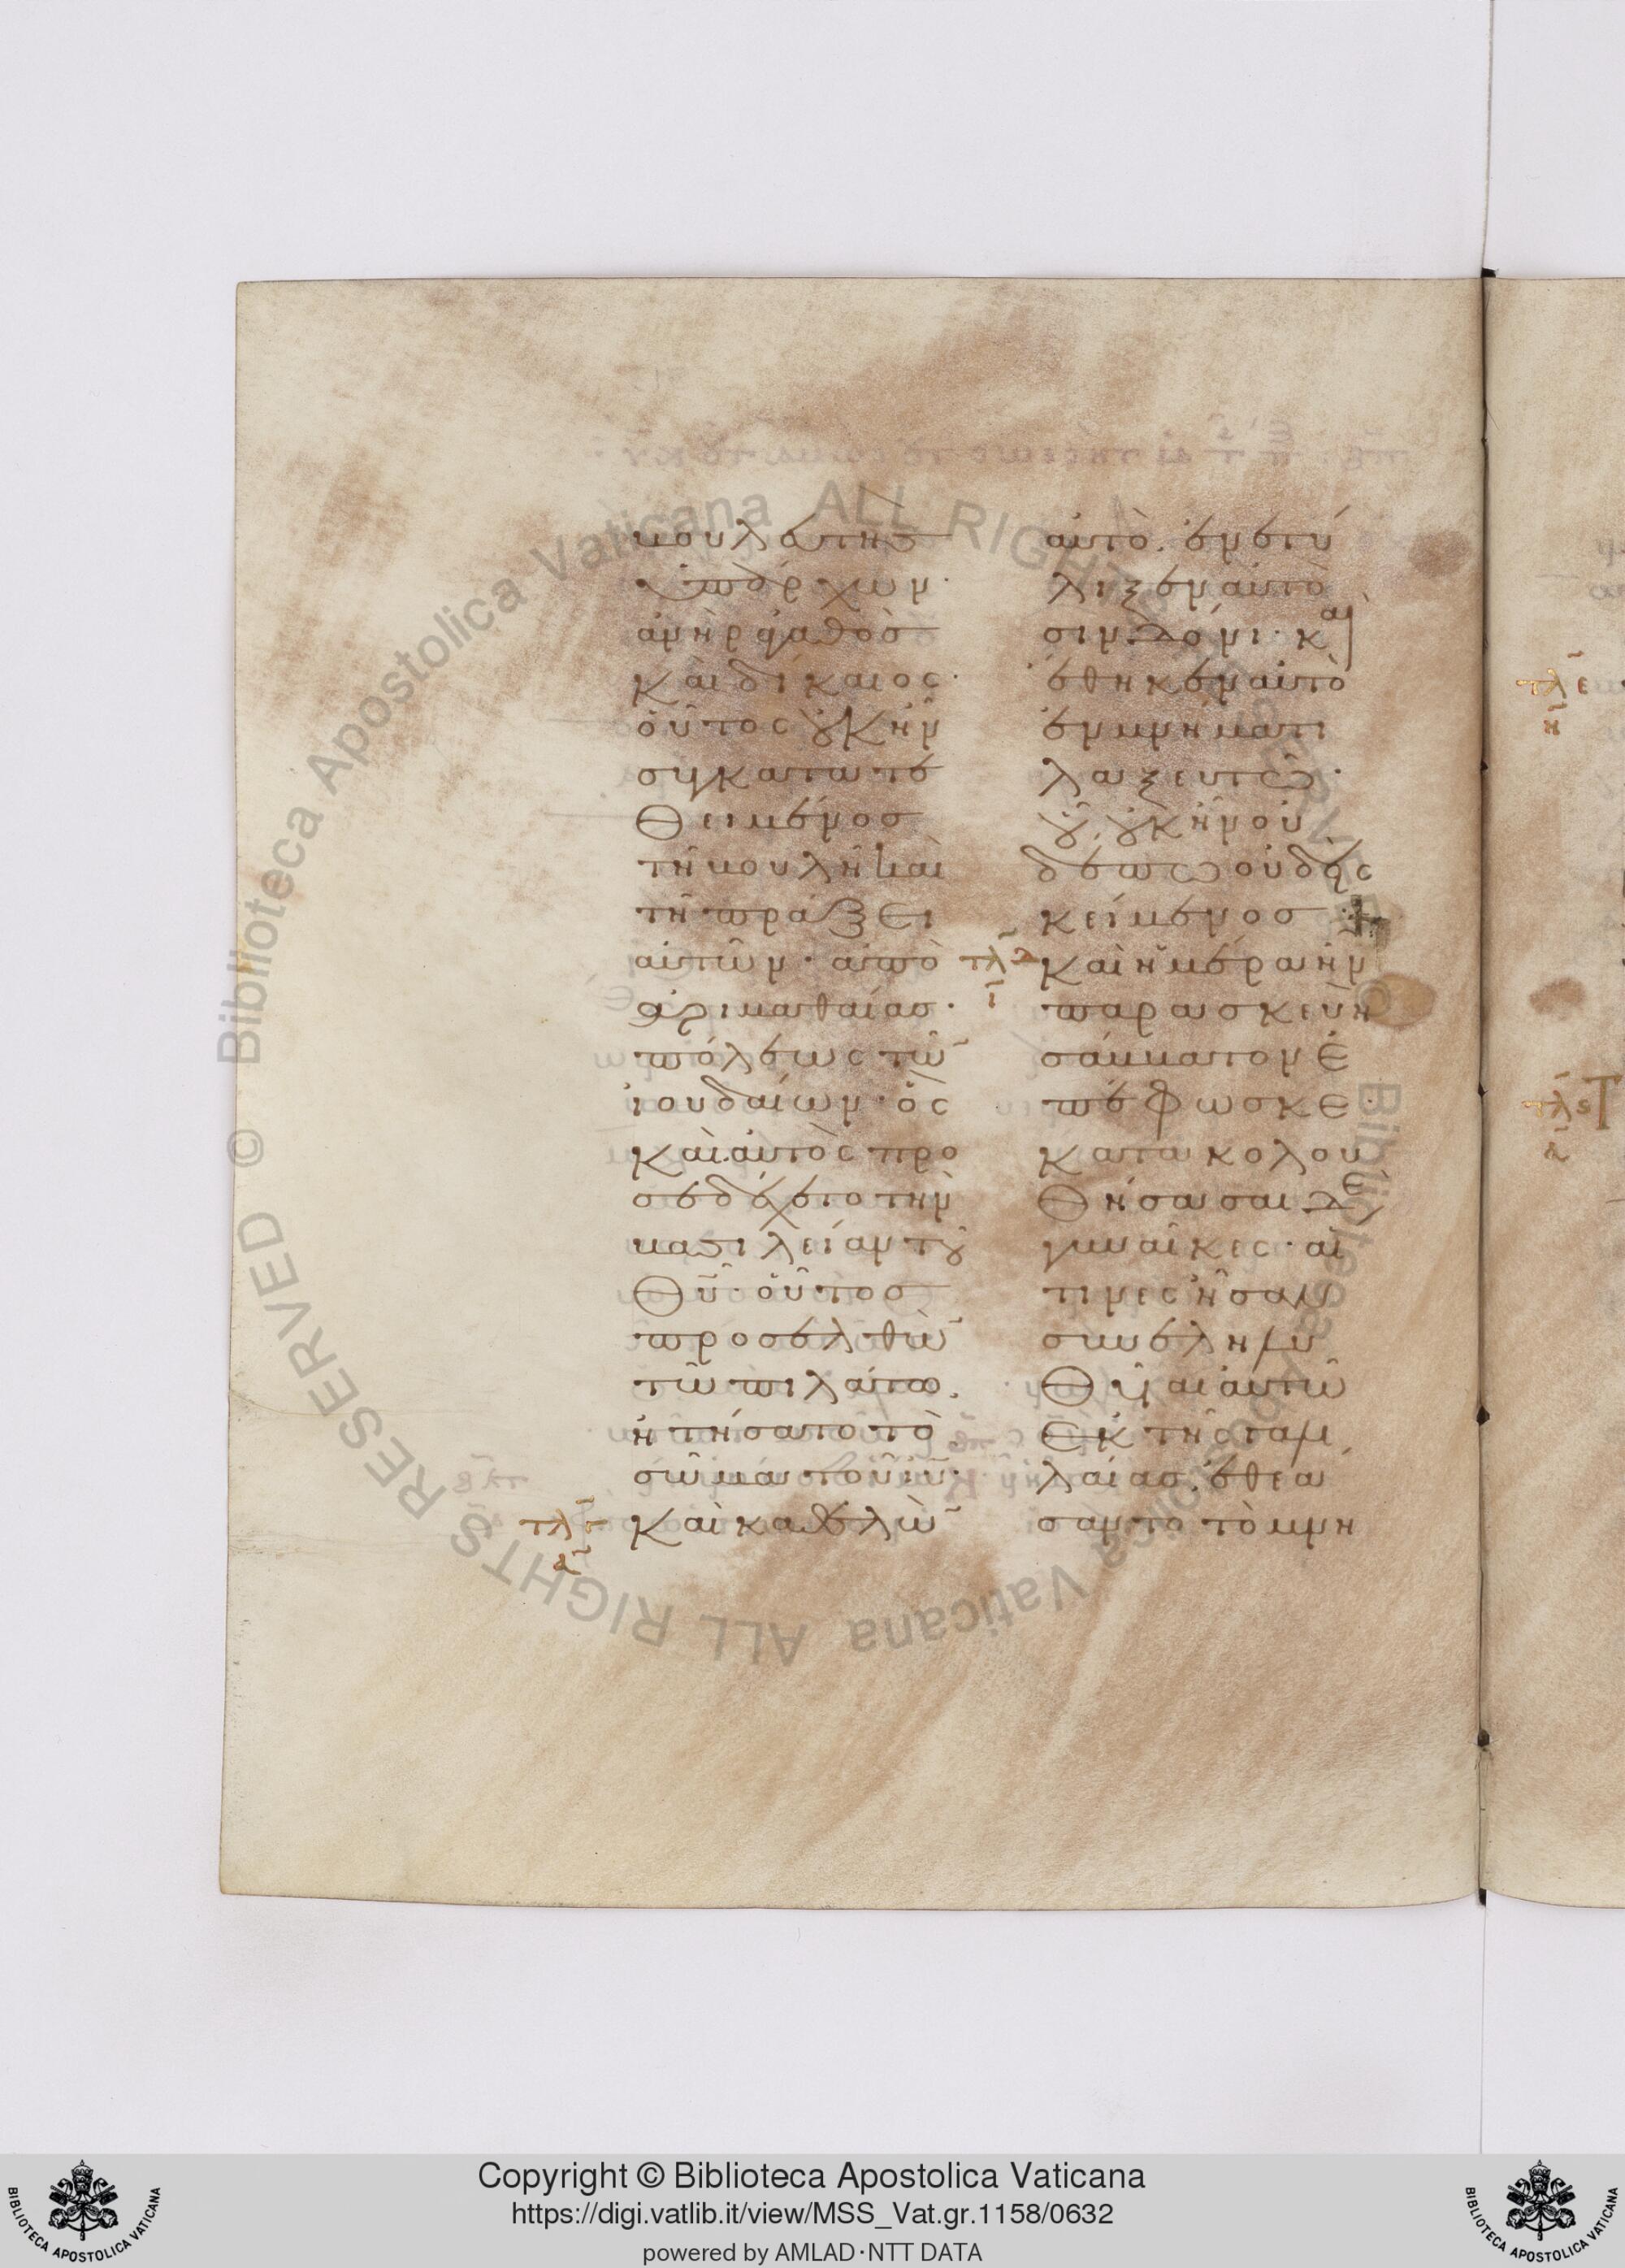 βουλευτὴς
ὑπάρχων·
ἀνὴρ ἀγαθὸσ
καὶ δίκαιος·
οὗτος οὐκ ἦν
συγκατατε
θειμένοσ
τῆ βουλῆ καὶ
τῆ πράξει
αὐτῶν· ἀπὸ
ἀριμαθαίασ·
πόλεως τῶ̄
ἰουδαίων· ὃς
καὶ αὐτὸς προ
σεδέχετο τὴν
βασιλείαν τοῦ
θ̄ῡ· οὗτοσ
προσελθὼ̄
τῶ πιλάτω,
ἠτήσατο τὸ
σῶμα τοῦ ῑῡ·
καὶ καθελὼ̄
αὐτὸ, ἐνετύ
λιξεν αὐτὸ
σινδόνι· καὶ
ἔθηκεν αὐτὸ
ἐν μνήματι
λαξευτῶ·
οὗ, οὐκ ἦν οὐ
δέπω οὐδεὶς
κείμενοσ ⁘
καὶ ἡμέρα ἦν
παρασκευὴ
σάββατον ἐ
πέφωσκε·
κατακολου
θήσασαι δὲ
γυναῖκες· αἵ
τινες ἦσαν
συνεληλυ
θυῖαι αὐτῶ
ἐκ τῆς γαλι
λαίασ, ἐθεά
σαντο τὸ μνη
τλ
τλ
τλ ε
η
τλ ϛ Τ
Copyright © Biblioteca Apostolica Vaticana
https://digi.vatlib.it/view/MSS_Vat.gr.1158/0632
powered by AMLAD·NTT DATA
BIBLIOTECA APOSTOLICA VATICANA
BIBLIOTECA APOSTOLICA VATICANA
© Biblioteca Apostolica Vaticana ALL RIGHTS RESERVED
© Biblioteca Apostolica Vaticana ALL RIGHTS RESERVED